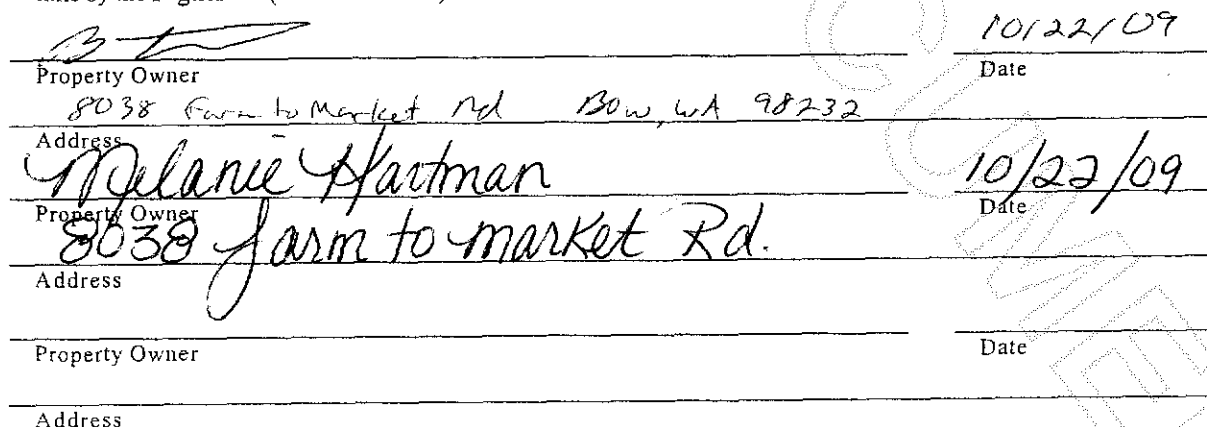 10/22/09
Property Owner Date
8038 Farm to Market Rd Bow, WA 98232
Address
Melanie Hartman 10/22/09
Property Owner Date
8038 farm to market Rd.
Address
Property Owner Date
Address